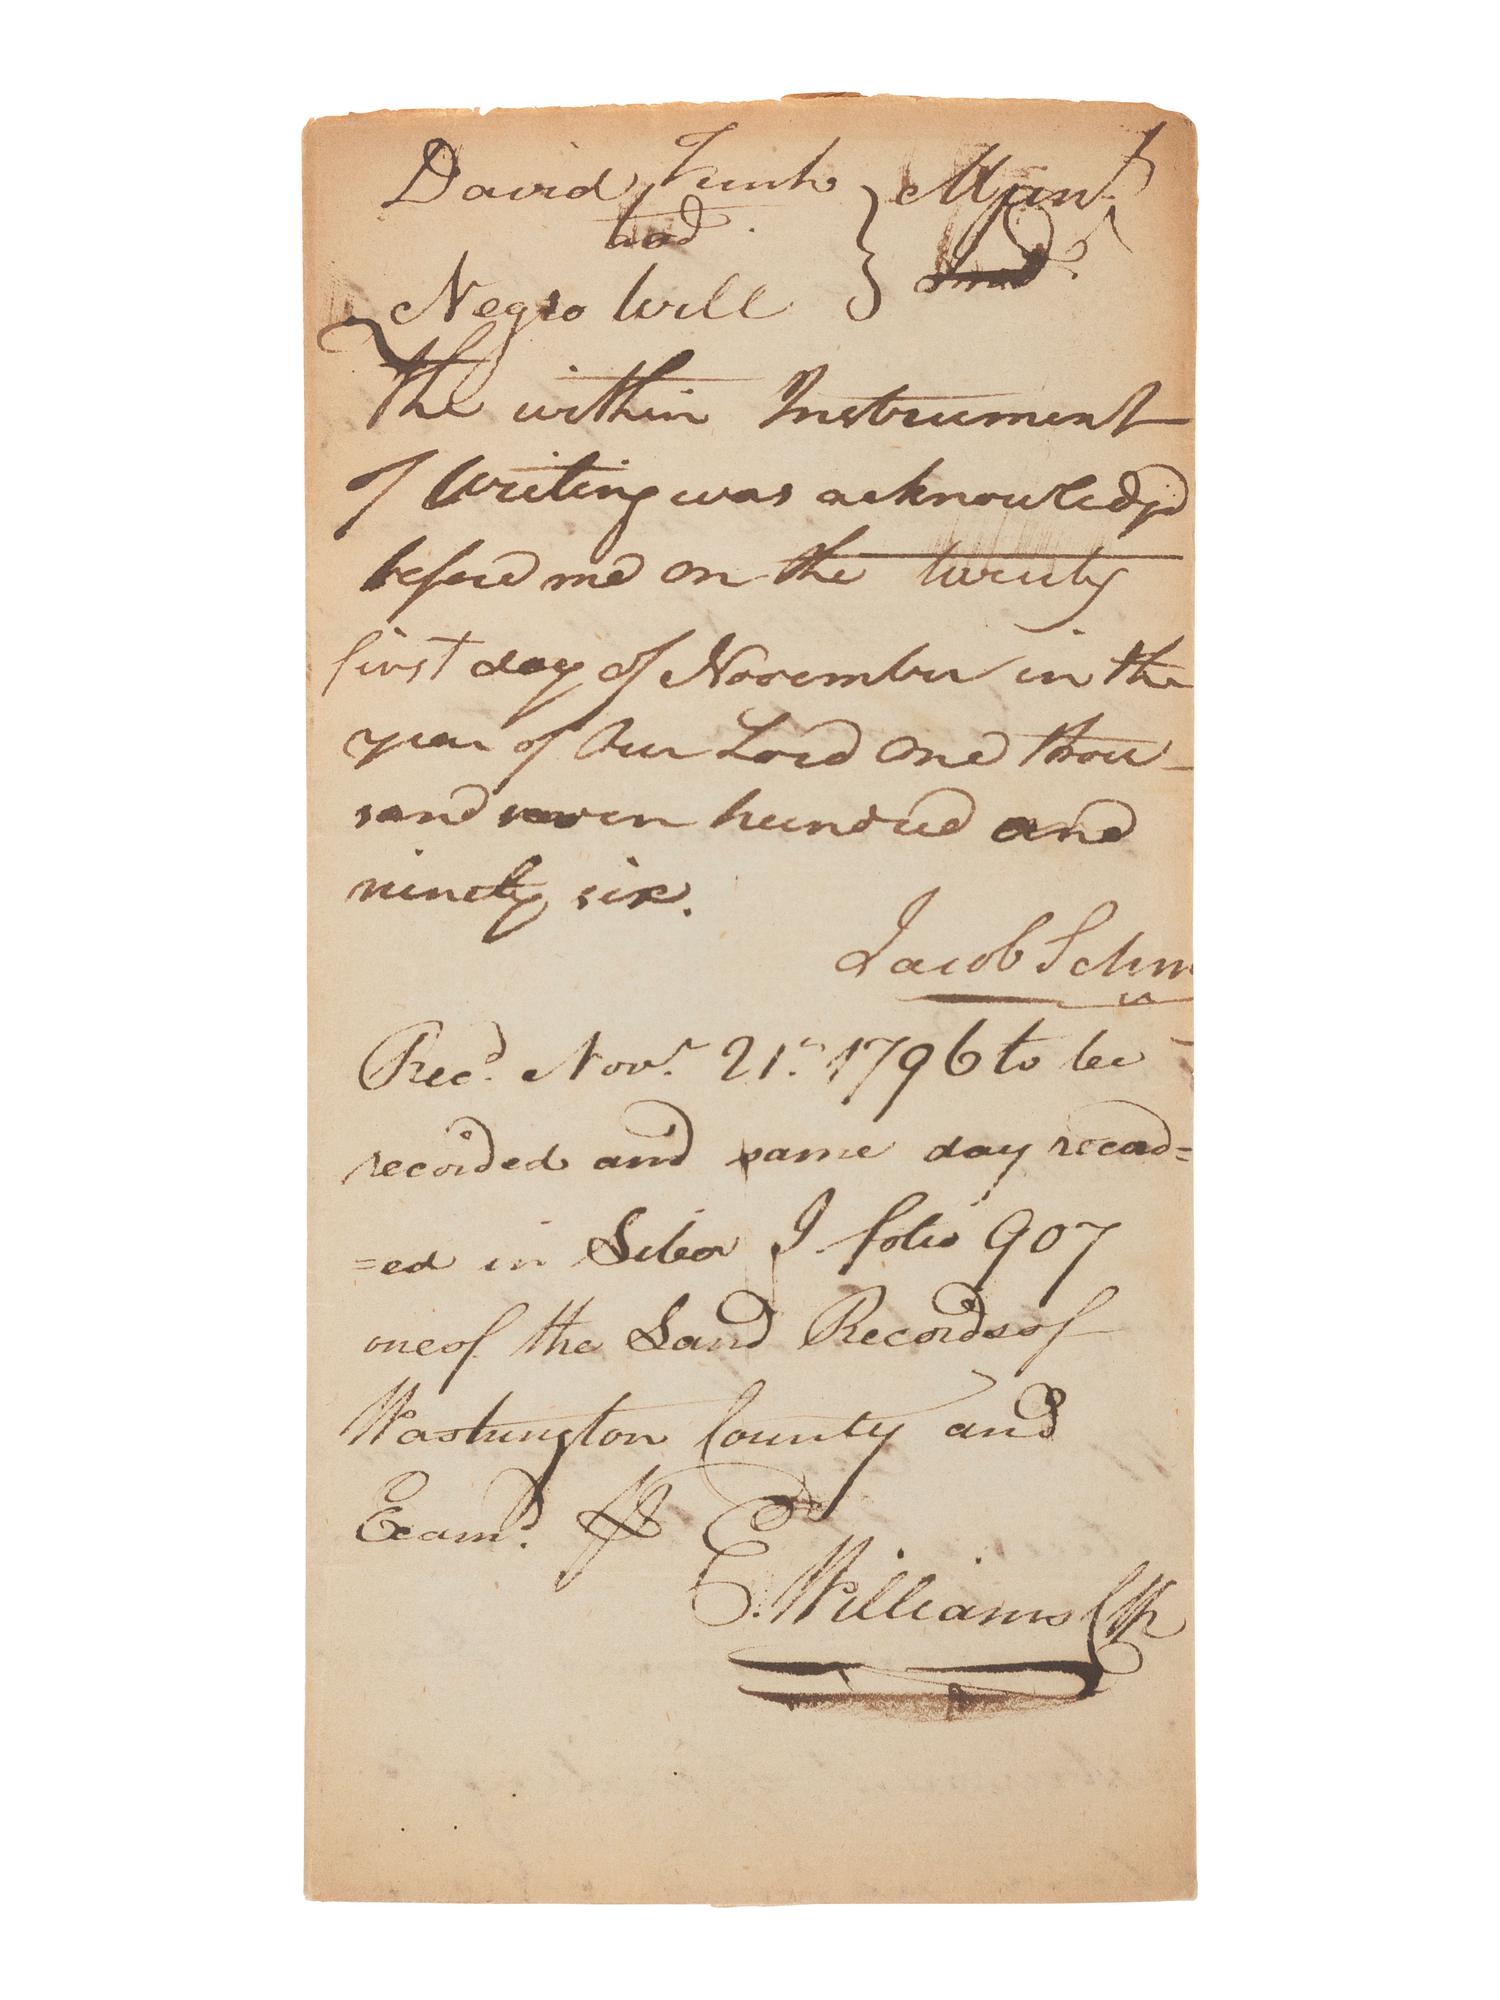 David Funk } Man.
to
Negro Will }
The within Instrument
of Writing was acknowledg'd
before me on the twenty
first day of November in the
year of Our Lord One thou-
sand seven hundred and
ninety six.
Jacob Schn
Rec.d Nov.r 21.st 1796 to be
recorded and same day record=
=ed in Liber I folio 907
one of the Land Records of
Washington County and
Exam.d &
E. Williams Clk